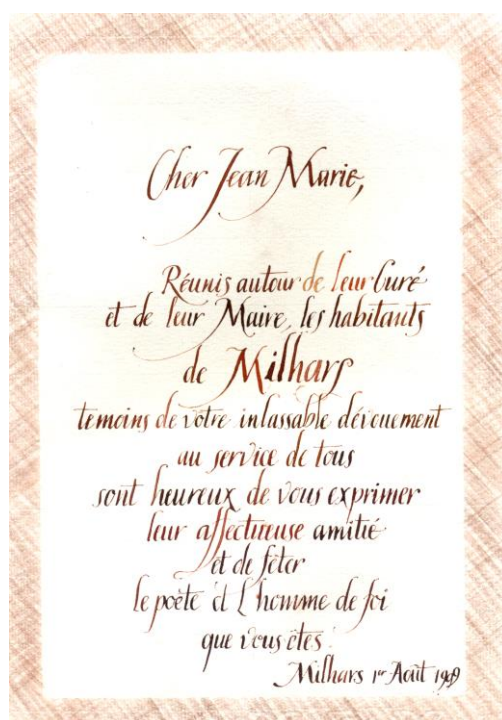 Cher Jean Marie,
Réunis autour de leur Curé
et de leur Maire, les habitants
de Milhars
temoins de votre inlassable dévouement
au service de tous
sont heureux de vous exprimer
leur affectueuse amitié
et de fêter
le poète et l'homme de foi
que vous êtes.
Milhars 1er Août